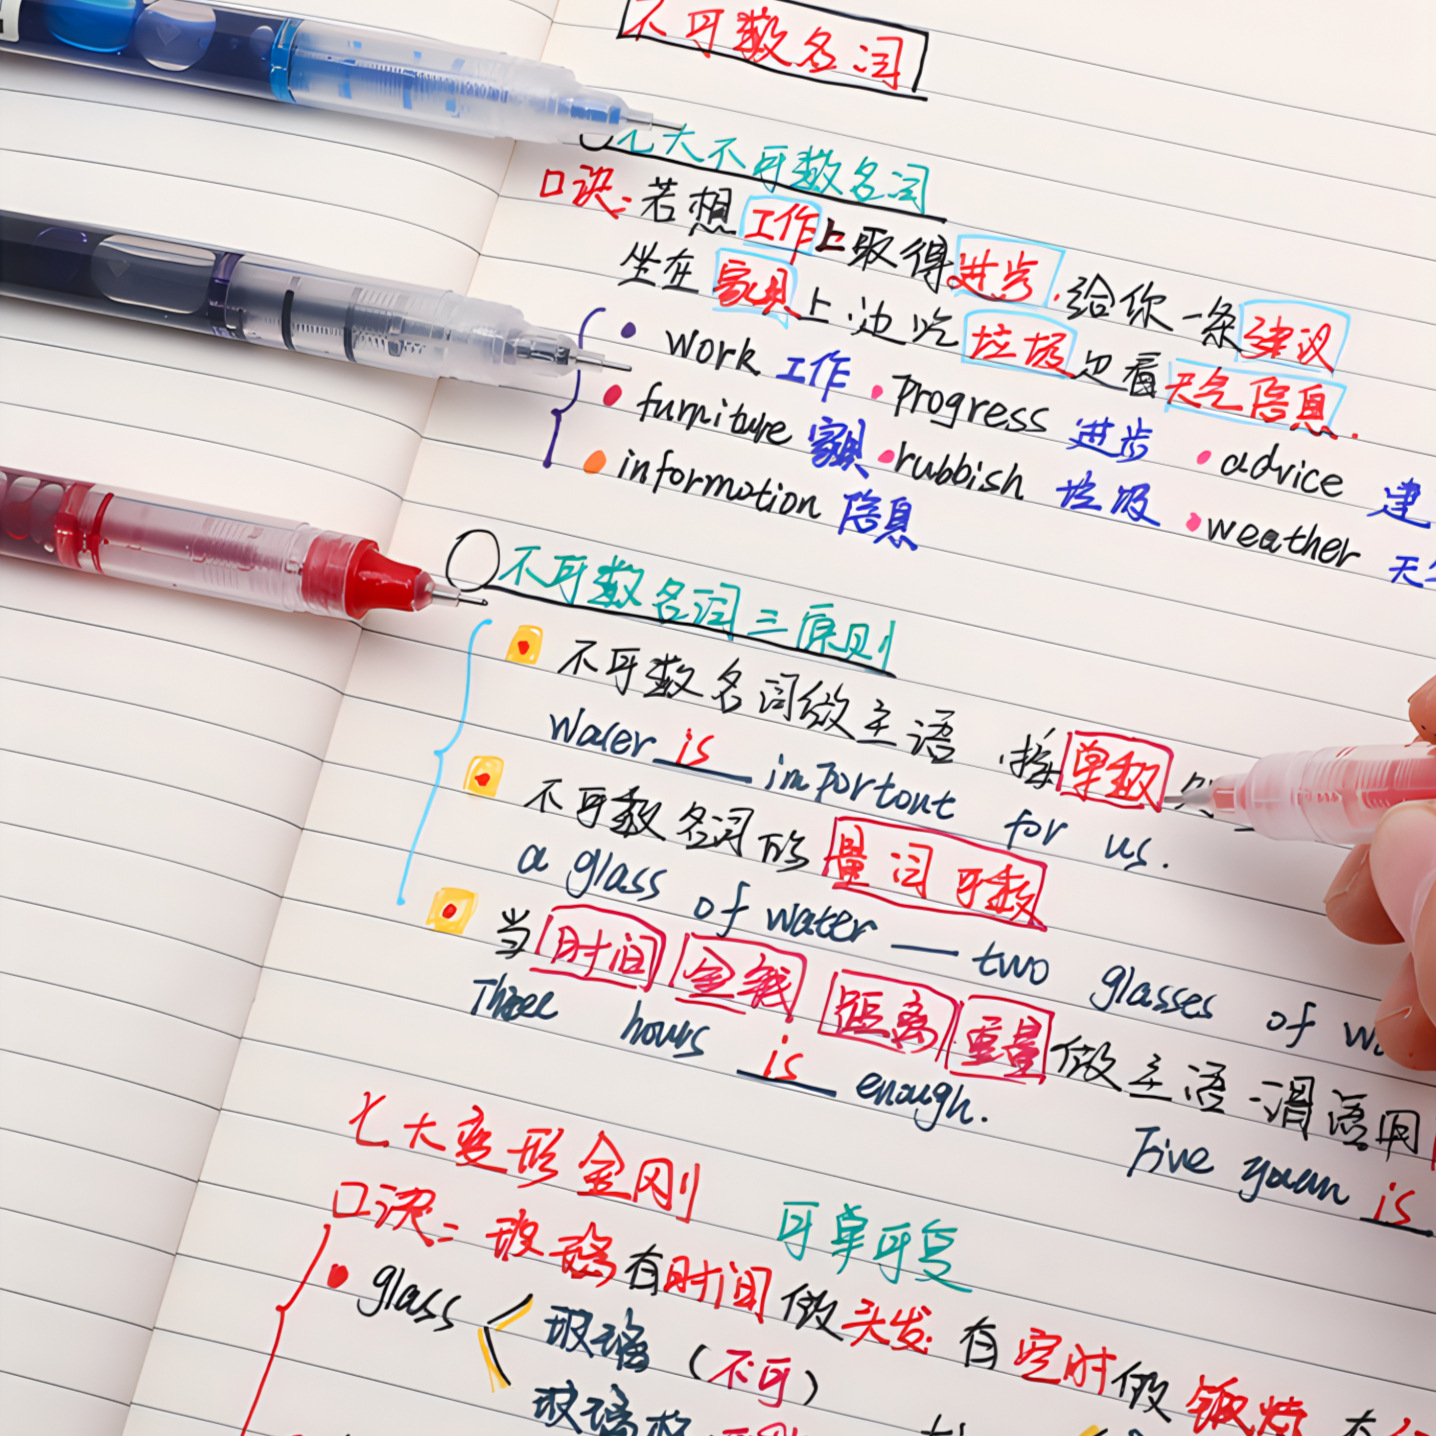 不可数名词
七大不可数名词
口诀:若想工作上取得进步,给你一条建议
坐在家具上,边吃垃圾边看天气信息.
• work 工作 • progress 进步 • advice 建
• furniture 家具 • rubbish 垃圾 • weather 天
• information 信息
不可数名词三原则
不可数名词做主语,接单数
Water is important for us.
不可数名词的量词可数
a glass of water — two glasses of w
当时间 金钱 距离 重量做主语,谓语用
Three hours is enough. Five yuan is
七大变形金刚
可单可复
口诀:玻璃有时间做头发,有空时做锻炼
• glass 玻璃 (不可)
玻璃杯